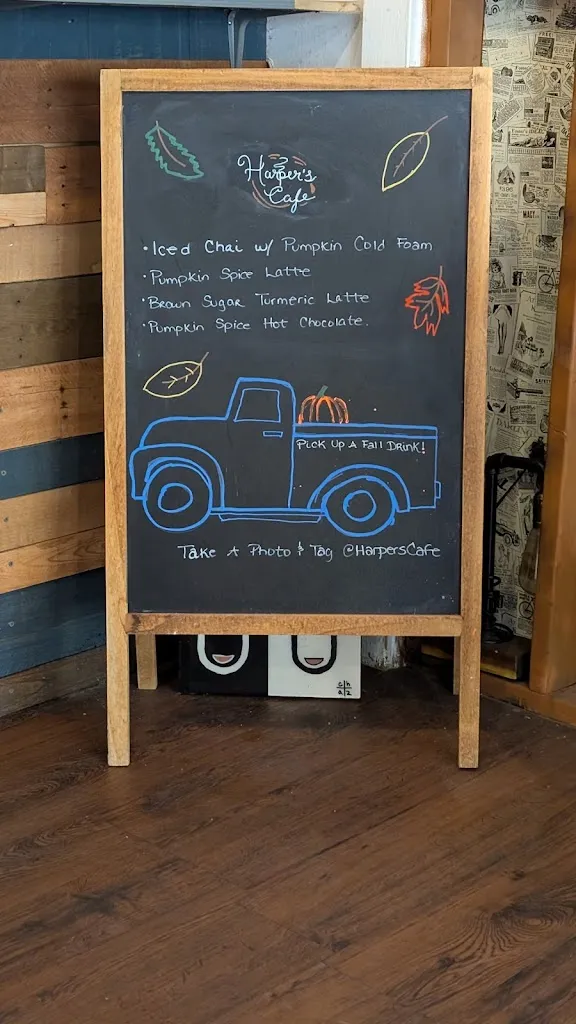 Harper's
Cafe
• Iced Chai w/ Pumpkin Cold Foam
• Pumpkin Spice Latte
• Brown Sugar Turmeric Latte
• Pumpkin Spice Hot Chocolate.
Pick Up A Fall Drink!
Take A Photo & Tag @HarpersCafe